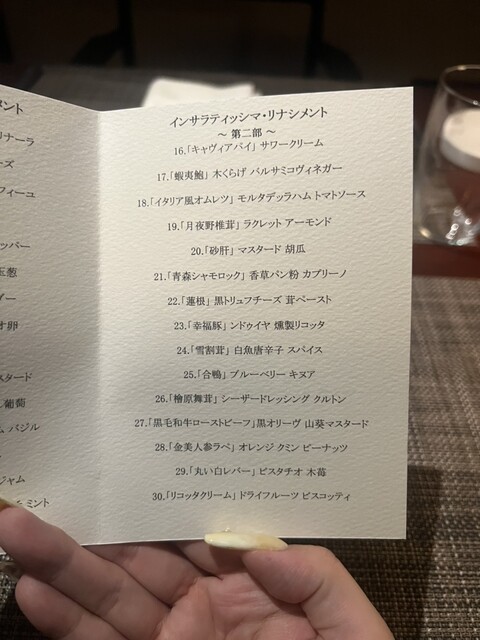 メント
リナーラ
ーズ
フィーユ
ッパー
玉葱
ダー
オ卵
スタード
葡萄
ム バジル
ジャム
ミント
インサラティッシマ・リナシメント
～ 第二部 ～
16.「キャヴィアパイ」 サワークリーム
17.「蝦夷鮑」 木くらげ バルサミコヴィネガー
18.「イタリア風オムレツ」 モルタデッラハム トマトソース
19.「月夜野椎茸」 ラクレット アーモンド
20.「砂肝」 マスタード 胡瓜
21.「青森シャモロック」 香草パン粉 カプリーノ
22.「蓮根」 黒トリュフチーズ 茸ペースト
23.「幸福豚」 ンドゥイヤ 燻製リコッタ
24.「雪割茸」 白魚唐辛子 スパイス
25.「合鴨」 ブルーベリー キヌア
26.「檜原舞茸」 シーザードレッシング クルトン
27.「黒毛和牛ローストビーフ」 黒オリーヴ 山葵マスタード
28.「金美人参ラペ」 オレンジ クミン ピーナッツ
29.「丸い白レバー」 ピスタチオ 木苺
30.「リコッタクリーム」 ドライフルーツ ビスコッティ